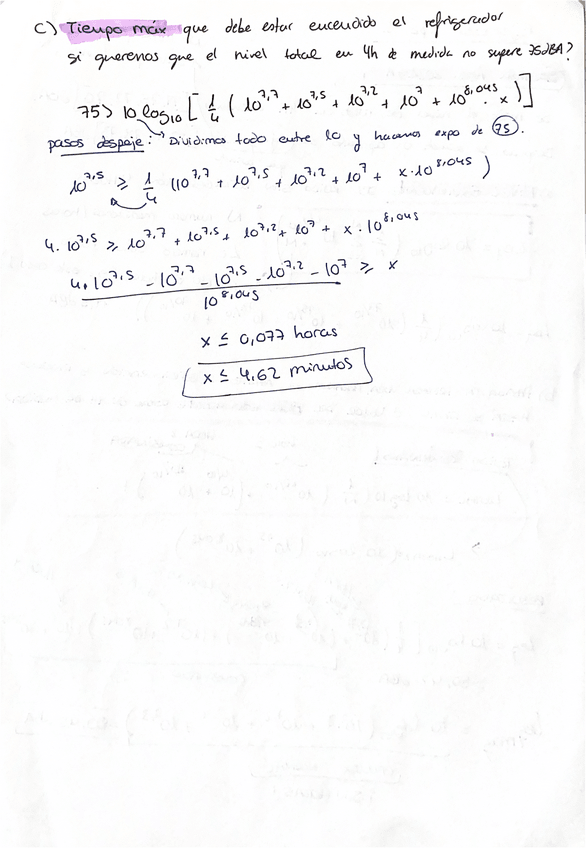 c) Tiempo máx que debe estar encendido el refrigerador
si queremos que el nivel total en 4h de medida no supere 75dBA?
75 > 10 log10 [ 1/4 ( 10^7,7 + 10^7,5 + 10^7,2 + 10^7 + 10^8,045 · x ) ]
pasos despeje: → Dividimos todo entre 10 y hacemos expo de 75.
10^7,5 ≥ 1/4 (10^7,7 + 10^7,5 + 10^7,2 + 10^7 + x·10^8,045 )
4. 10^7,5 ≥ 10^7,7 + 10^7,5 + 10^7,2 + 10^7 + x · 10^8,045
4·10^7,5 - 10^7,7 - 10^7,5 - 10^7,2 - 10^7 ≥ x
10^8,045
x ≤ 0,077 horas
x ≤ 4,62 minutos